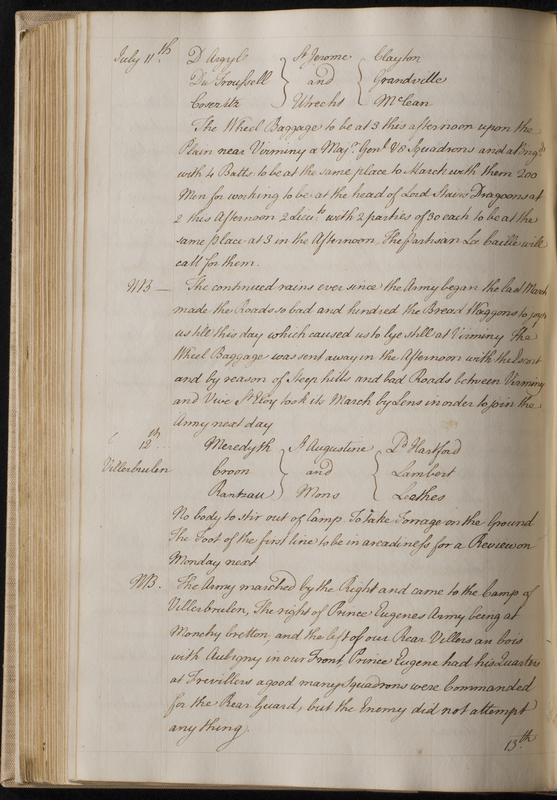 July 11th D Argyle St Jerome Clayton
Du Troussell and Grandville
Coseritz Utrecht McLean
The Wheel Baggage to be at 3 this afternoon upon the
Plain near Virminy a Majr Genl & 8 Squadrons and a Brigdr
with 4 Batts to be at the same place to March with them 200
Men for working to be at the head of Lord Stairs Dragoons at
2 this Afternoon 2 Lieuts with 2 parties of 30 each to be at the
same place at 3 in the Afternoon, The partisan Le baille will
call for them.
NB — The continued rains ever since the Army began the last March
made the Roads so bad and hundred the Bread Waggons to joyn
us till this day which caused us to lye still at Virminy The
Wheel Baggage was sent away in the Afternoon with the Escort
and by reason of Steep hills and bad Roads between Virminy
and Vive St Eloy took its March by Lens in order to join the
Army next day
12th Meredyth St Augustine Ld Hartford
Villerbrulen Croon and Lambert
Rantzau Mons Leathes
No body to stir out of Camp. To take Forrage on the Ground
The Foot of the first line to be in a readiness for a Review on
Monday next
NB. The Army marched by the Right and came to the Camp of
Villerbrulon, The right of Prince Eugenes Army being at
Monchy bretton, and the left of our Rear Villers au bois
with Aubigny in our Front, Prince Eugene had his Quarters
at Trevillers a good many Squadrons were Commanded
for the Rear Guard, but the Enemy did not attempt
any thing.
13th